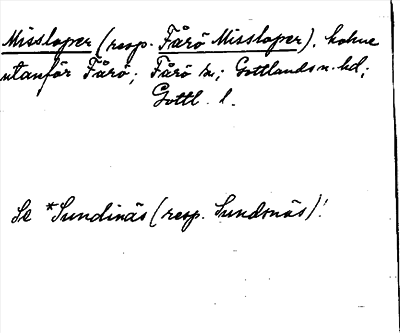 Missloper (resp. Fårö Missloper), holme
utanför Fårö; Fårö sn; Gottlands n. hd;
Gottl. l.
Se *Sundinäs (resp. Sundsnäs)!